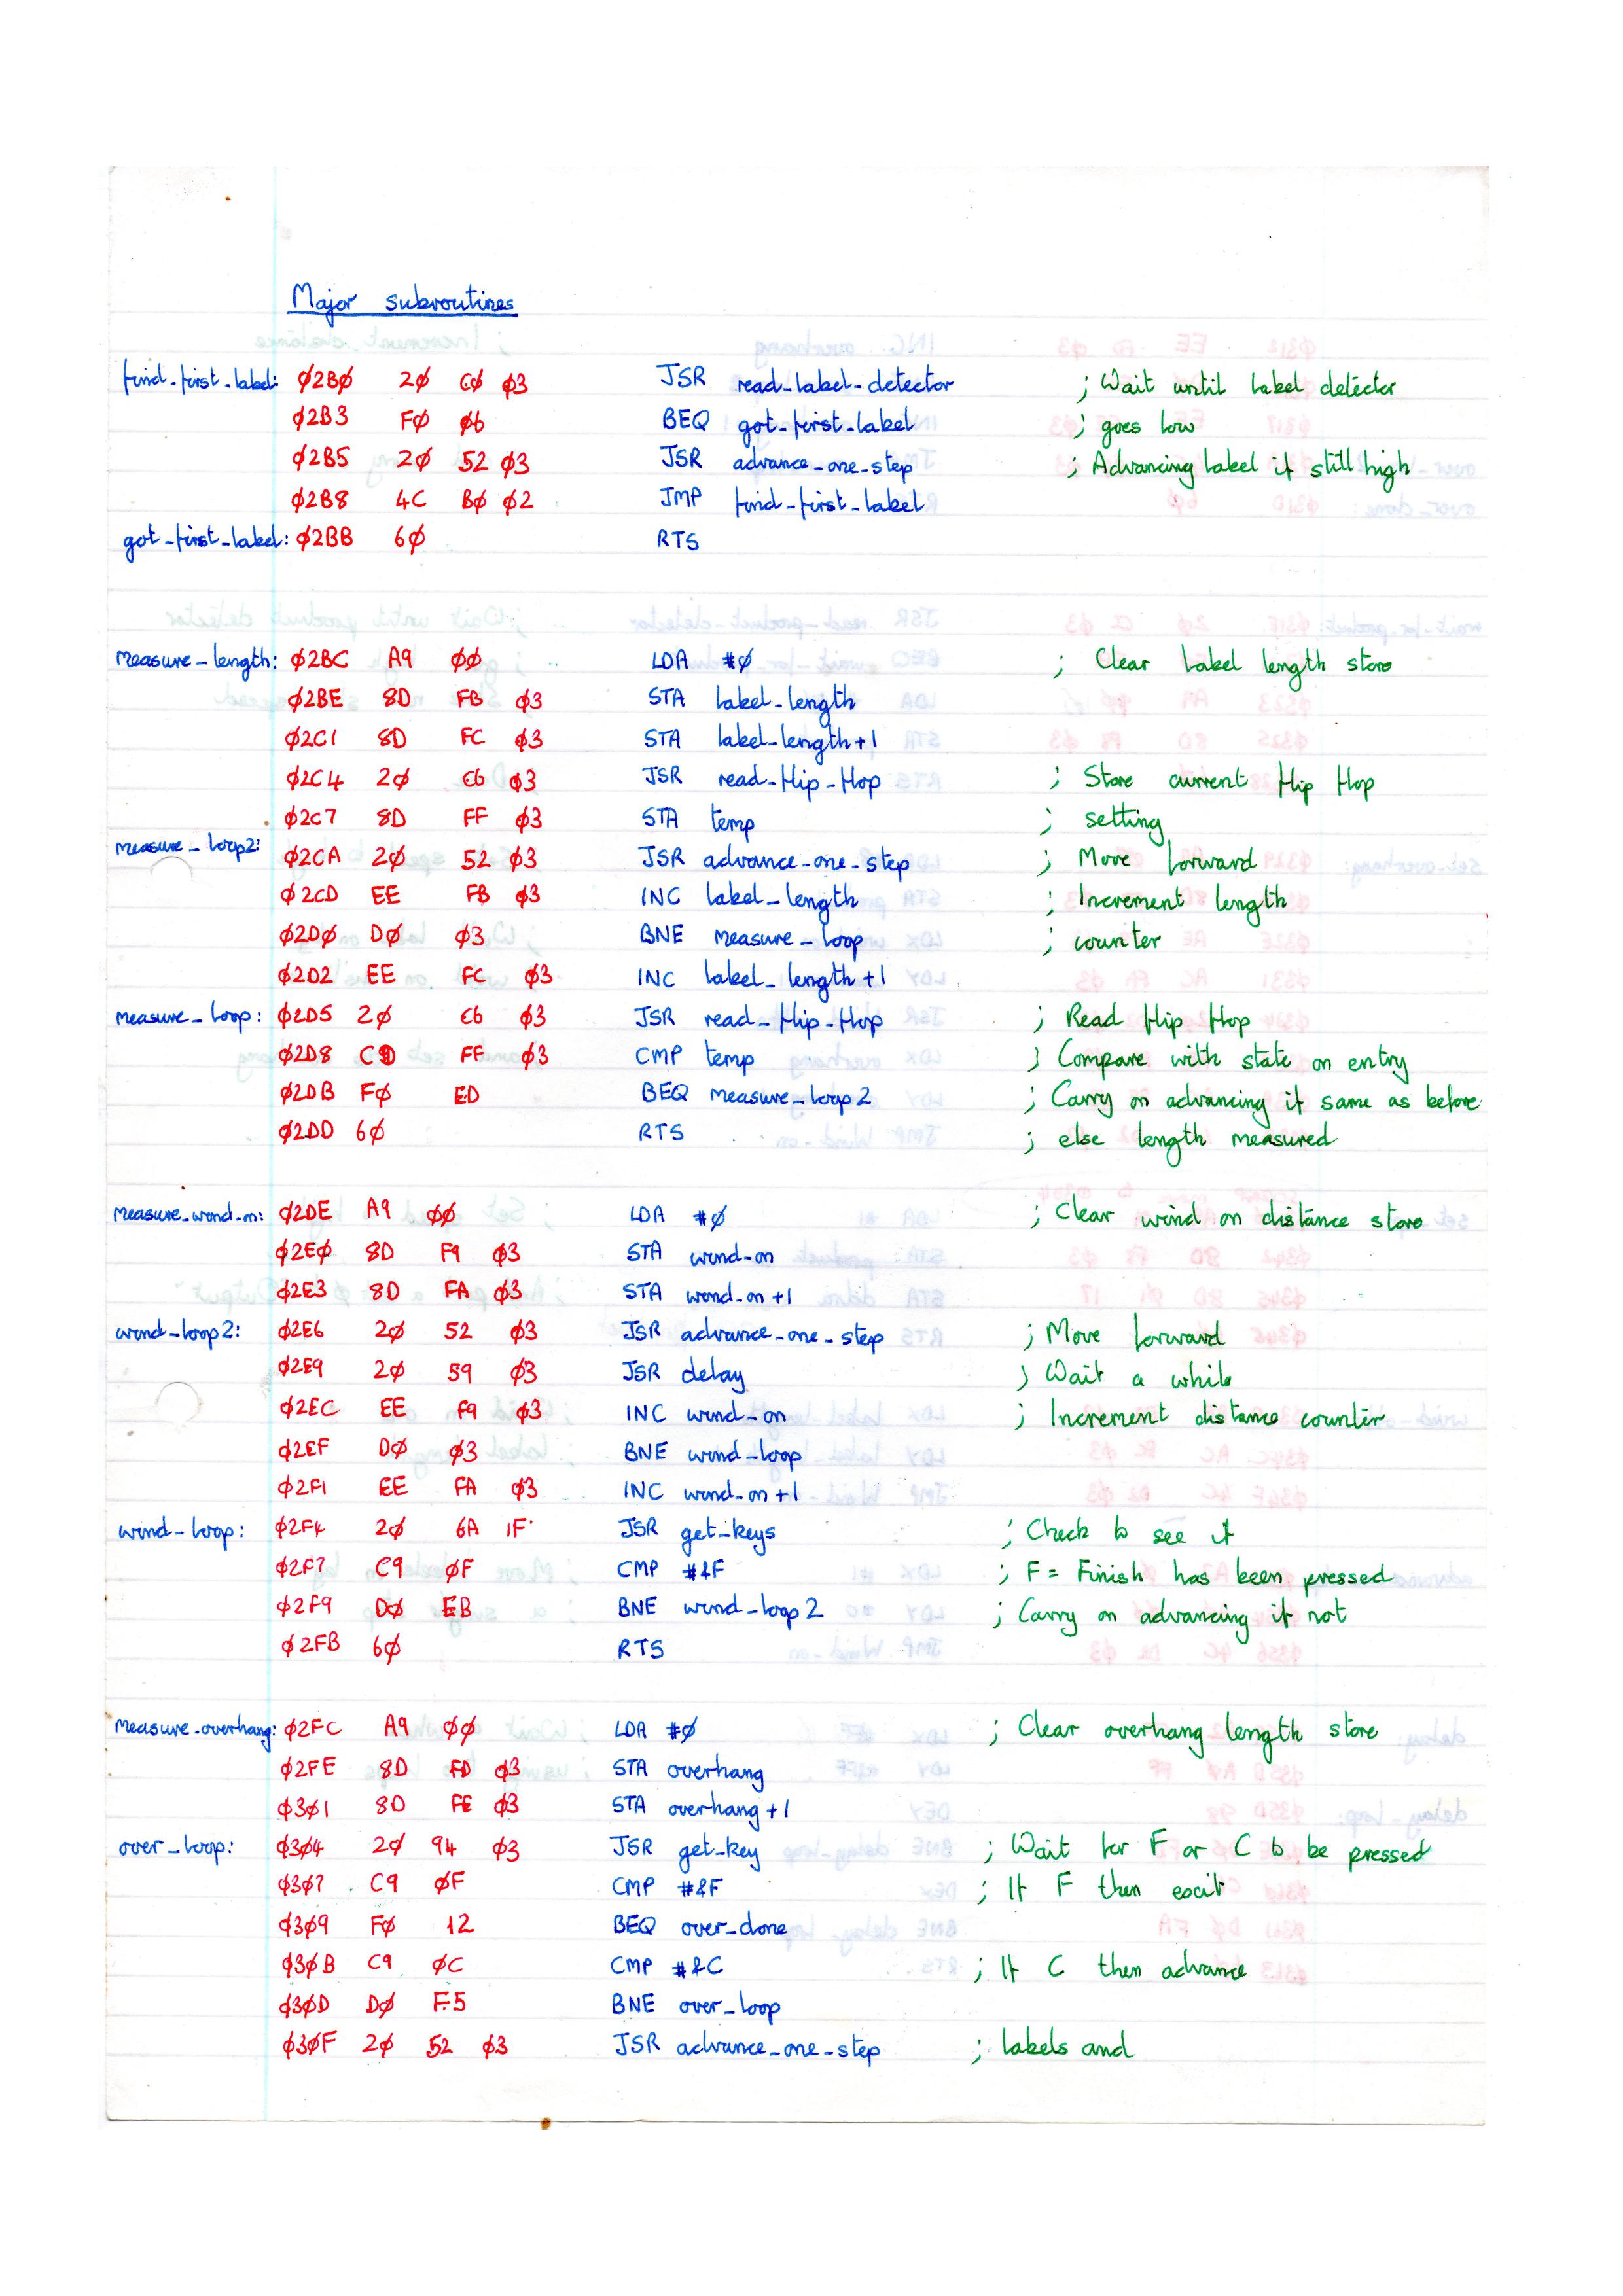 Major subroutines
find_first_label: Ø2BØ 2Ø CØ Ø3 JSR read_label_detector ; Wait until label detector
Ø2B3 FØ Ø6 BEQ got_first_label ; goes low
Ø2B5 2Ø 52 Ø3 JSR advance_one_step ; Advancing label if still high
Ø2B8 4C BØ Ø2 JMP find_first_label
got_first_label: Ø2BB 6Ø RTS
measure_length: Ø2BC A9 ØØ LDA #Ø ; Clear label length store
Ø2BE 8D FB Ø3 STA label_length
Ø2C1 8D FC Ø3 STA label_length+1
Ø2C4 2Ø C6 Ø3 JSR read_flip_flop ; Store current flip flop
Ø2C7 8D FF Ø3 STA temp ; setting
measure_loop2: Ø2CA 2Ø 52 Ø3 JSR advance_one_step ; Move forward
Ø2CD EE FB Ø3 INC label_length ; Increment length
Ø2DØ DØ Ø3 BNE measure_loop ; counter
Ø2D2 EE FC Ø3 INC label_length+1
measure_loop: Ø2D5 2Ø C6 Ø3 JSR read_flip_flop ; Read flip flop
Ø2D8 CD FF Ø3 CMP temp ; Compare with state on entry
Ø2DB FØ ED BEQ measure_loop2 ; Carry on advancing if same as before
Ø2DD 6Ø RTS ; else length measured
measure_wind_on: Ø2DE A9 ØØ LDA #Ø ; Clear wind on distance store
Ø2EØ 8D F9 Ø3 STA wind_on
Ø2E3 8D FA Ø3 STA wind_on+1
wind_loop2: Ø2E6 2Ø 52 Ø3 JSR advance_one_step ; Move forward
Ø2E9 2Ø 59 Ø3 JSR delay ; Wait a while
Ø2EC EE F9 Ø3 INC wind_on ; Increment distance counter
Ø2EF DØ Ø3 BNE wind_loop
Ø2F1 EE FA Ø3 INC wind_on+1
wind_loop: Ø2F4 2Ø 6A 1F JSR get_keys ; Check to see if
Ø2F7 C9 ØF CMP #&F ; F = Finish has been pressed
Ø2F9 DØ EB BNE wind_loop2 ; Carry on advancing if not
Ø2FB 6Ø RTS
measure_overhang: Ø2FC A9 ØØ LDA #Ø ; Clear overhang length store
Ø2FE 8D FD Ø3 STA overhang
Ø3Ø1 8D FE Ø3 STA overhang+1
over_loop: Ø3Ø4 2Ø 94 Ø3 JSR get_key ; Wait for F or C to be pressed
Ø3Ø7 C9 ØF CMP #&F ; If F then exit
Ø3Ø9 FØ 12 BEQ over_done
Ø3ØB C9 ØC CMP #&C ; If C then advance
Ø3ØD DØ F5 BNE over_loop
Ø3ØF 2Ø 52 Ø3 JSR advance_one_step ; labels and